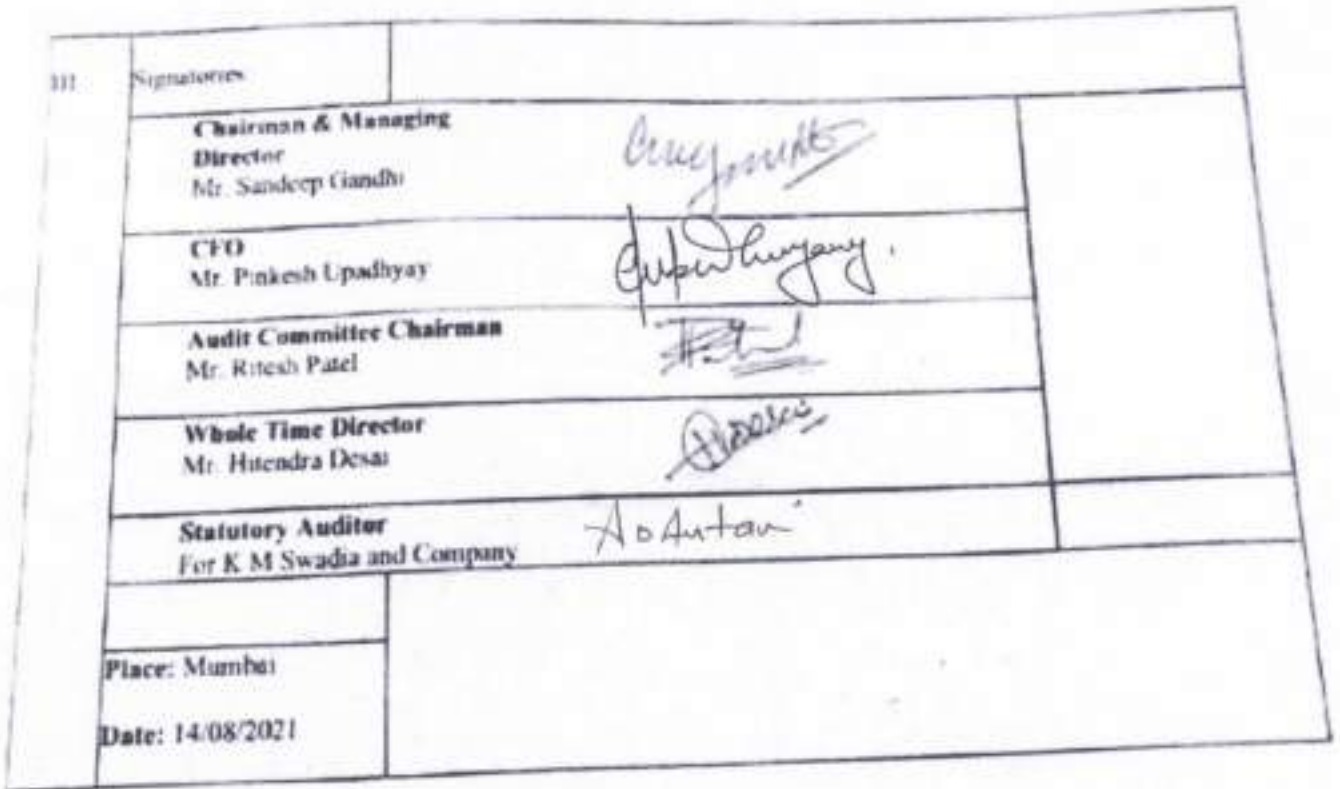 III
Signatories
Chairman & Managing
Director
Mr. Sandeep Gandhi
CFO
Mr. Pinkesh Upadhyay
Audit Committee Chairman
Mr. Ritesh Patel
Whole Time Director
Mr. Hitendra Desai
Statutory Auditor
For K M Swadia and Company
Place: Mumbai
Date: 14/08/2021